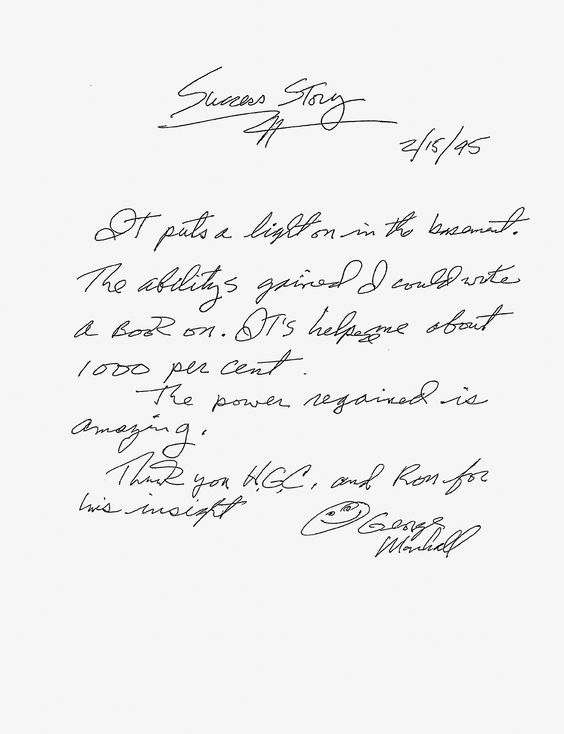 Success Story
2/15/95
It puts a light on in the basement.
The abilitys gained I could write
a Book on. It's helped me about
1000 per cent.
The power regained is
amazing.
Thank you H.G.C., and Ron for
his insight
George
Marshall